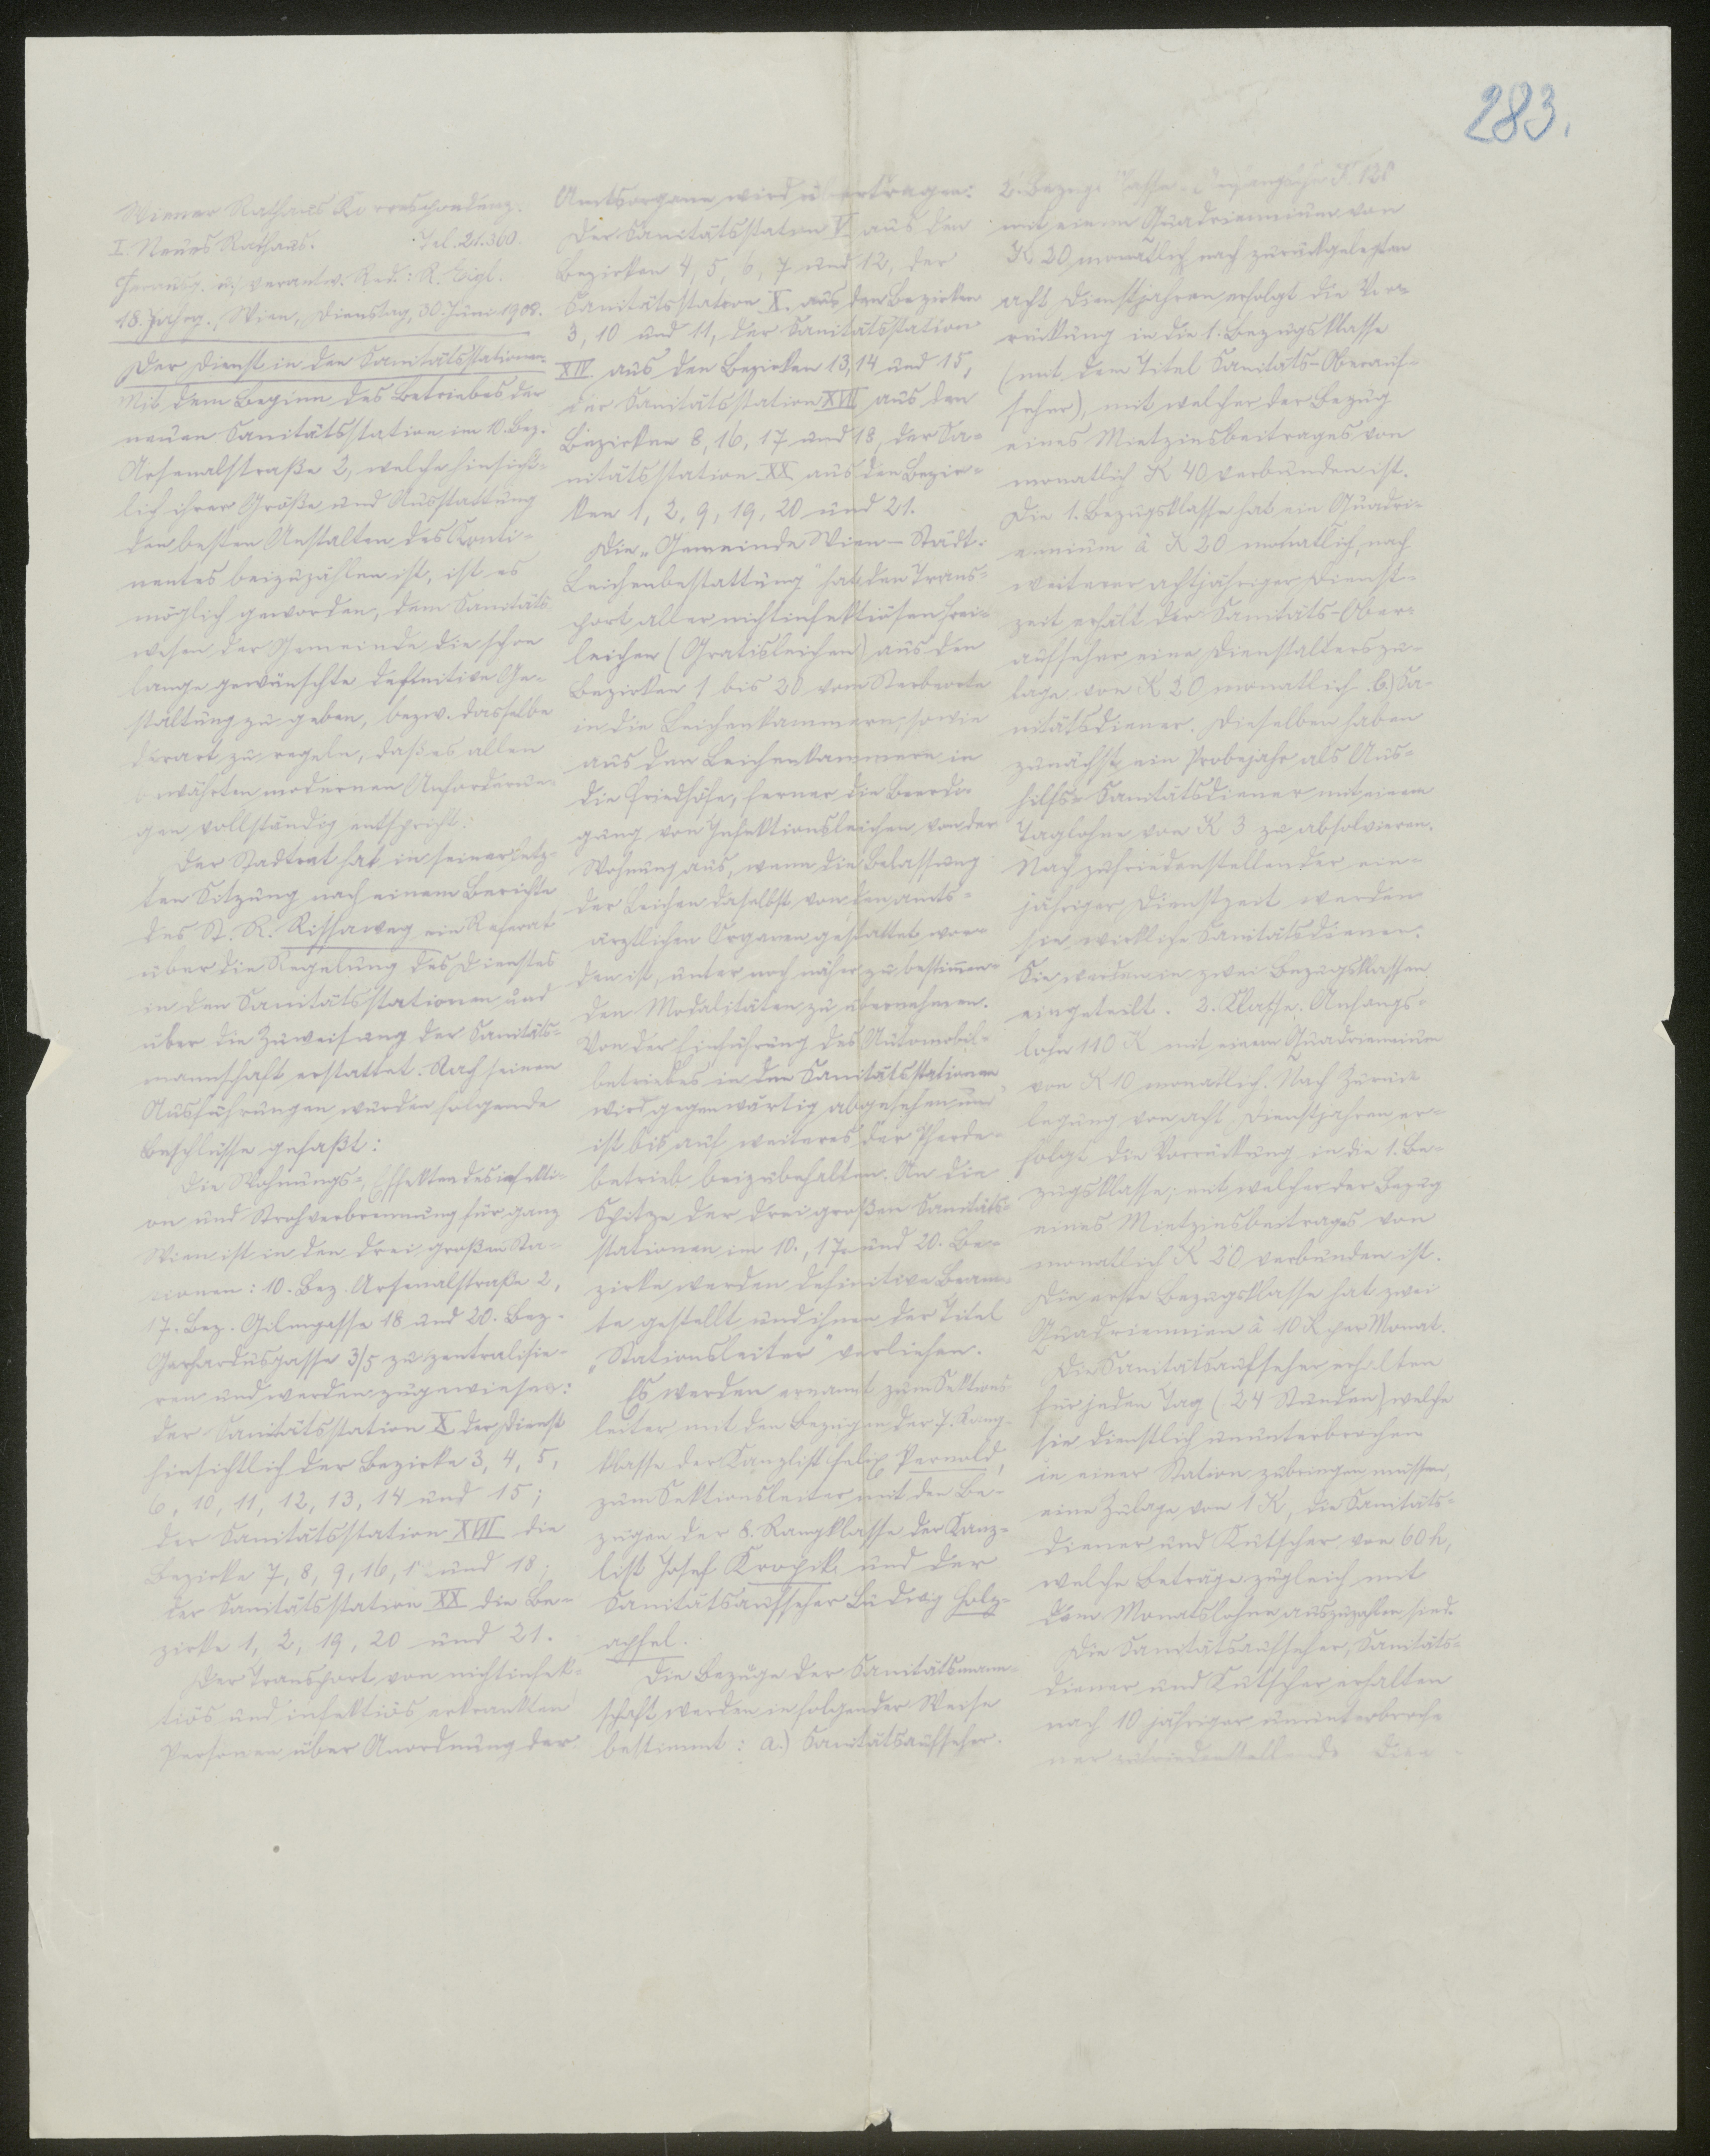 283.
Wiener Rathaus Korrespondenz.
I. Neues Rathaus. Tel. 21.360.
Herausg. u. verantw. Red.: R. Eigl.
18. Jahrg., Wien, Dienstag, 30. Juni 1908.
Der Dienst in den Sanitätsstationen.
Mit dem Beginn des Betriebes der
neuen Sanitätsstation im 10. Bez.
Arsenalstraße 2, welche hinsicht-
lich ihrer Größe und Ausstattung
den besten Anstalten des Konti-
nentes beizuzählen ist, ist es
möglich geworden, dem Sanitäts-
wesen der Gemeinde die schon
lange gewünschte definitive Ge-
staltung zu geben, bezw. dasselbe
derart zu regeln, daß es allen
bewährten modernen Anforderun-
gen vollständig entspricht.
Der Stadtrat hat in seiner letz-
ten Sitzung nach einem Berichte
des St. R. Rissaweg ein Referat
über die Regelung des Dienstes
in den Sanitätsstationen und
über die Zuweisung der Sanitäts-
mannschaft erstattet. Nach seinen
Ausführungen wurden folgende
Beschlüsse gefaßt:
Die Wohnungs-, Effektendesinfekti-
on und Strohverbrennung für ganz
Wien ist in den drei großen Sta-
tionen: 10. Bez. Arsenalstraße 2,
17. Bez. Gilmgasse 18 und 20. Bez.
Gerhardusgasse 3/5 zu zentralisie-
ren und werden zugewiesen:
der Sanitätsstation X der Dienst
hinsichtlich der Bezirke 3, 4, 5,
6, 10, 11, 12, 13, 14 und 15;
der Sanitätsstation XVII die
Bezirke 7, 8, 9, 16, 1 und 18;
der Sanitätsstation XX die Be-
zirke 1, 2, 19, 20 und 21.
Der Transport von nichtinfek-
tiös und infektiös erkrankten
Personen über Anordnung der
Amtsorgane wird übertragen:
Der Sanitätsstation V aus den
Bezirken 4, 5, 6, 7 und 12, der
Sanitätsstation X. aus den Bezirken
3, 10 und 11, der Sanitätsstation
XIV. aus den Bezirken 13, 14 und 15,
der Sanitätsstation XVII aus den
Bezirken 8, 16, 17 und 18, der Sa-
nitätsstation XX aus den Bezir-
ken 1, 2, 9, 19, 20 und 21.
Die „Gemeinde Wien – Städt.
Leichenbestattung" hat den Trans-
port aller nichtinfektiösen Frei-
leichen (Gratisleichen) aus den
Bezirken 1 bis 20 vom Sterbeorte
in die Leichenkammern, sowie
aus den Leichenkammern in
die Friedhöfe, ferner die Beerdi-
gung von Infektionsleichen von der
Wohnung aus, wenn die Belassung
der Leichen daselbst von den amts-
ärztlichen Organen gestattet wor-
den ist, unter noch näher zu bestimmen-
den Modalitäten zu übernehmen.
Von der Einführung des Automobil-
betriebes in den Sanitätsstationen
wird gegenwärtig abgesehen und
ist bis auf weiteres der Pferde-
betrieb beizubehalten. An die
Spitze der drei großen Sanitäts-
stationen im 10., 17. und 20. Be-
zirke werden definitive Beam-
te gestellt und ihnen der Titel
„Stationsleiter" verliehen.
Es werden ernannt zum Sektions-
leiter mit den Bezügen der 7. Rang-
klasse der Kanzlist Felix Pernold,
zum Sektionsleiter mit den Be-
zügen der 8. Rangklasse der Kanz-
list Josef Kropik und der
Sanitätsaufseher Ludwig Holz-
apfel.
Die Bezüge der Sanitätsmann-
schaft werden in folgender Weise
bestimmt: a.) Sanitätsaufseher.
2. Bezugsklasse.
mit einem Quadriennium von
K 20 monatlich nach zurückgelegten
acht Dienstjahren erfolgt die Vor-
rückung in die 1. Bezugsklasse
(mit dem Titel Sanitäts-Oberauf-
seher), mit welcher der Bezug
eines Mietzinsbeitrages von
monatlich K 40 verbunden ist.
Die 1. Bezugsklasse hat ein Quadri-
ennium à K 20 monatlich, nach
weiterer achtjähriger Dienst-
zeit erhält der Sanitäts-Ober-
aufseher eine Dienstalterszu-
lage von K 20 monatlich. b.) Sa-
nitätsdiener. Dieselben haben
zunächst ein Probejahr als Aus-
hilfs-Sanitätsdiener mit einem
Taglohne von K 3 zu absolvieren.
Nach zufriedenstellender ein-
jähriger Dienstzeit werden
sie wirkliche Sanitätsdiener.
Sie werden in zwei Bezugsklassen
eingeteilt. 2. Klasse. Anfangs-
lohn 110 K mit einem Quadriennium
von K 10 monatlich. Nach Zurück-
legung von acht Dienstjahren er-
folgt die Vorrückung in die 1. Be-
zugsklasse, mit welcher der Bezug
eines Mietzinsbeitrages von
monatlich K 20 verbunden ist.
Die erste Bezugsklasse hat zwei
Quadriennien à 10 K per Monat.
Die Sanitätsaufseher erhalten
für jeden Tag (24 Stunden) welche
sie dienstlich ununterbrochen
in einer Station zubringen müssen,
eine Zulage von 1 K, die Sanitäts-
diener und Kutscher von 60 h,
welche Beträge zugleich mit
dem Monatslohne auszuzahlen sind.
Die Sanitätsaufseher, Sanitäts-
diener und Kutscher erhalten
nach 10 jähriger ununterbroche-
ner zufriedenstellende Dien